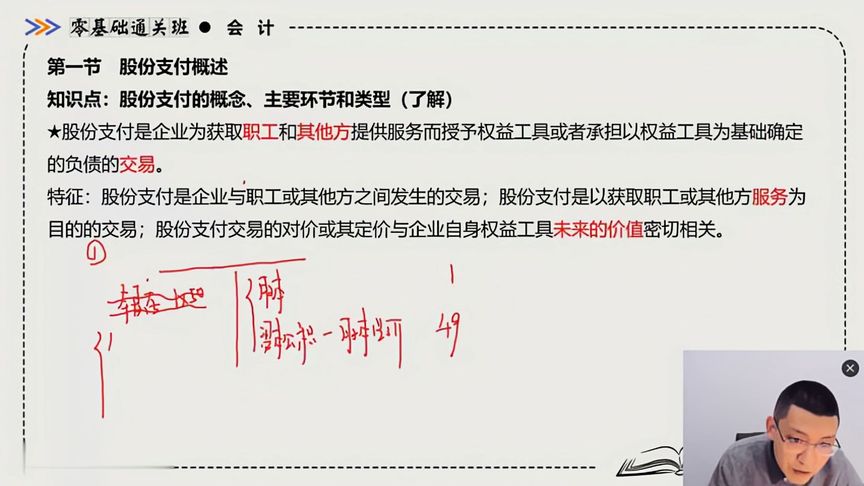 零基础通关班 ● 会 计
第一节 股份支付概述
知识点：股份支付的概念、主要环节和类型（了解）
★股份支付是企业为获取职工和其他方提供服务而授予权益工具或者承担以权益工具为基础确定
的负债的交易。
特征：股份支付是企业与职工或其他方之间发生的交易；股份支付是以获取职工或其他方服务为
目的的交易；股份支付交易的对价或其定价与企业自身权益工具未来的价值密切相关。
①
股本 1
资本公积－股本溢价 49